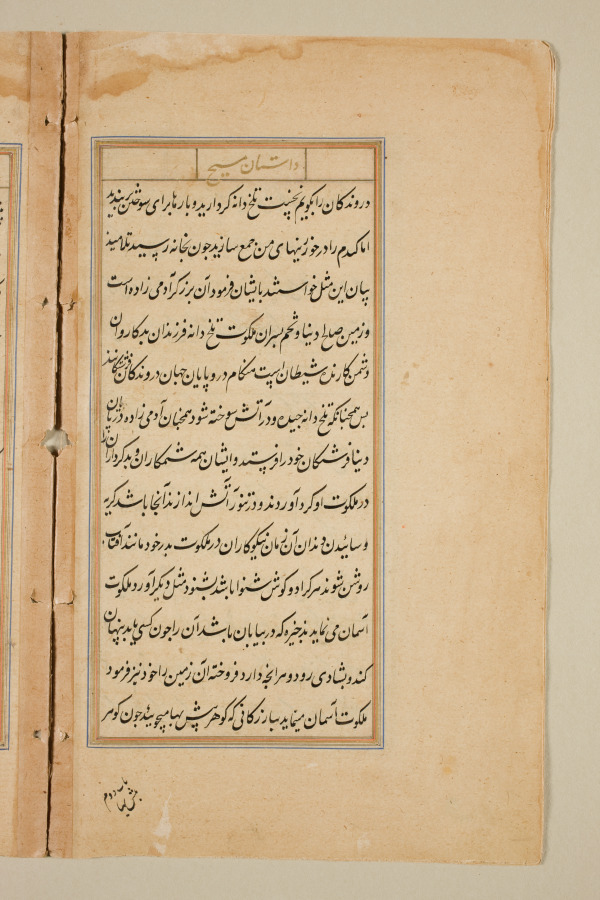 داستان مسیح
دروندکان را بکویم نخست تلخ دانه کرد ارید و بارها برای سوختن بندید
اما کندم را در خوزینهای من جمع سازید جون بخانه رسید تلامیذ
بیان این مثل خواستند بایشان فرمود آن برزکر آدمی زاده است
و زمین صلح دنیا و تخم بسران ملکوت تلخ دانه فرزندان بدکار وان
دشمن کارنده شیطان است هنکام درو پایان جهان دروندکان فرشتکانند
بس همچنانکه تلخ دانه جیده و در آتش سوخته شود همچنان آدمی زاده در پایان
دنیا فرشتکان خود را فرستد و ایشان همه ستمکاران و بدکرداران را
در ملکوت او کرد آوردند و در تنور آتش اندازند آنجا باشد کریه
و سائیدن دندان آن زمان نیکوکاران در ملکوت بدر خود مانند آفتاب
روشن شوند هر کرا دو کوش شنوا باشد بشنود مثل دیکر آورد ملکوت
آسمان می نماید بذخیره که در بیابان باشد آن را جون کسی یابد بنهان
کند و بشادی رود و هر انچه دارد فروخته آن زمین را خود نیز فرمود
ملکوت آسمان مینماید ببازرکانی که کوهر بیش بها میجوید جون کوهر
باب دوم